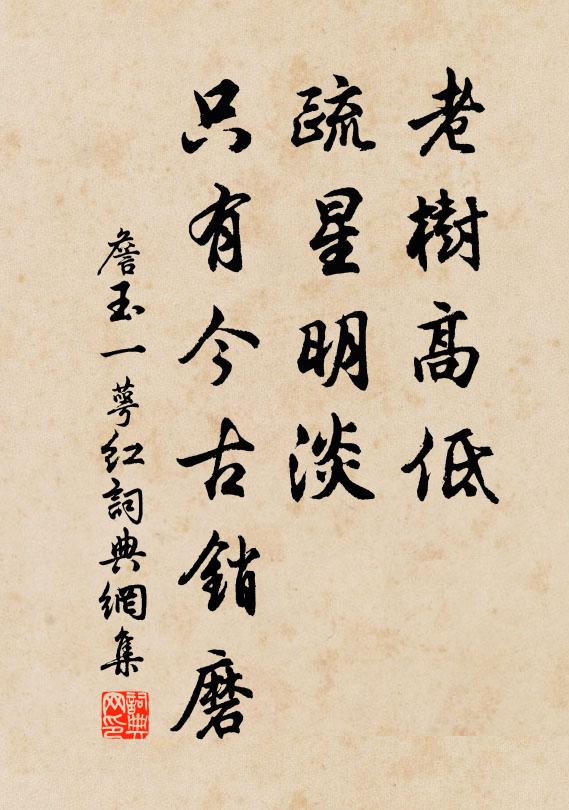 老樹高低
疏星明淡
只有今古銷磨
詹玉一萼紅詞典網集
詞典网印